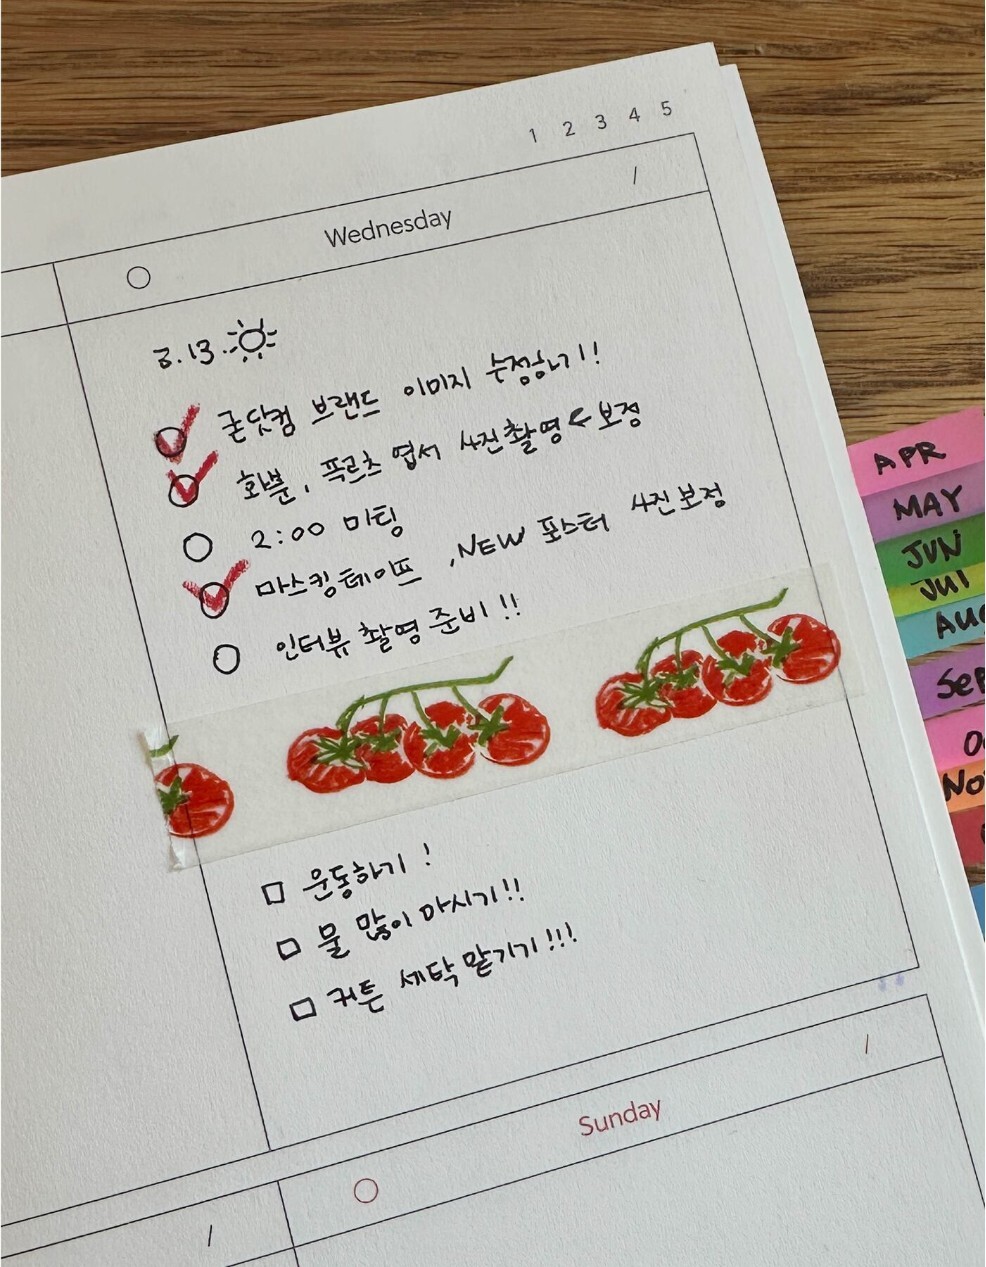 1 2 3 4 5
/
Wednesday
3.13.
굳닷컴 브랜드 이미지 수정하기!
화분, 푹르츠 엽서 사진촬영 < 보정
2:00 미팅
마스킹테이프 , NEW 포스터 사진보정
인터뷰 촬영 준비!!
운동하기!
물 많이 마시기!!
커튼 세탁 맡기기!!!
/
Sunday
/
APR
MAY
JUN
JUL
AUG
SEP
NOV